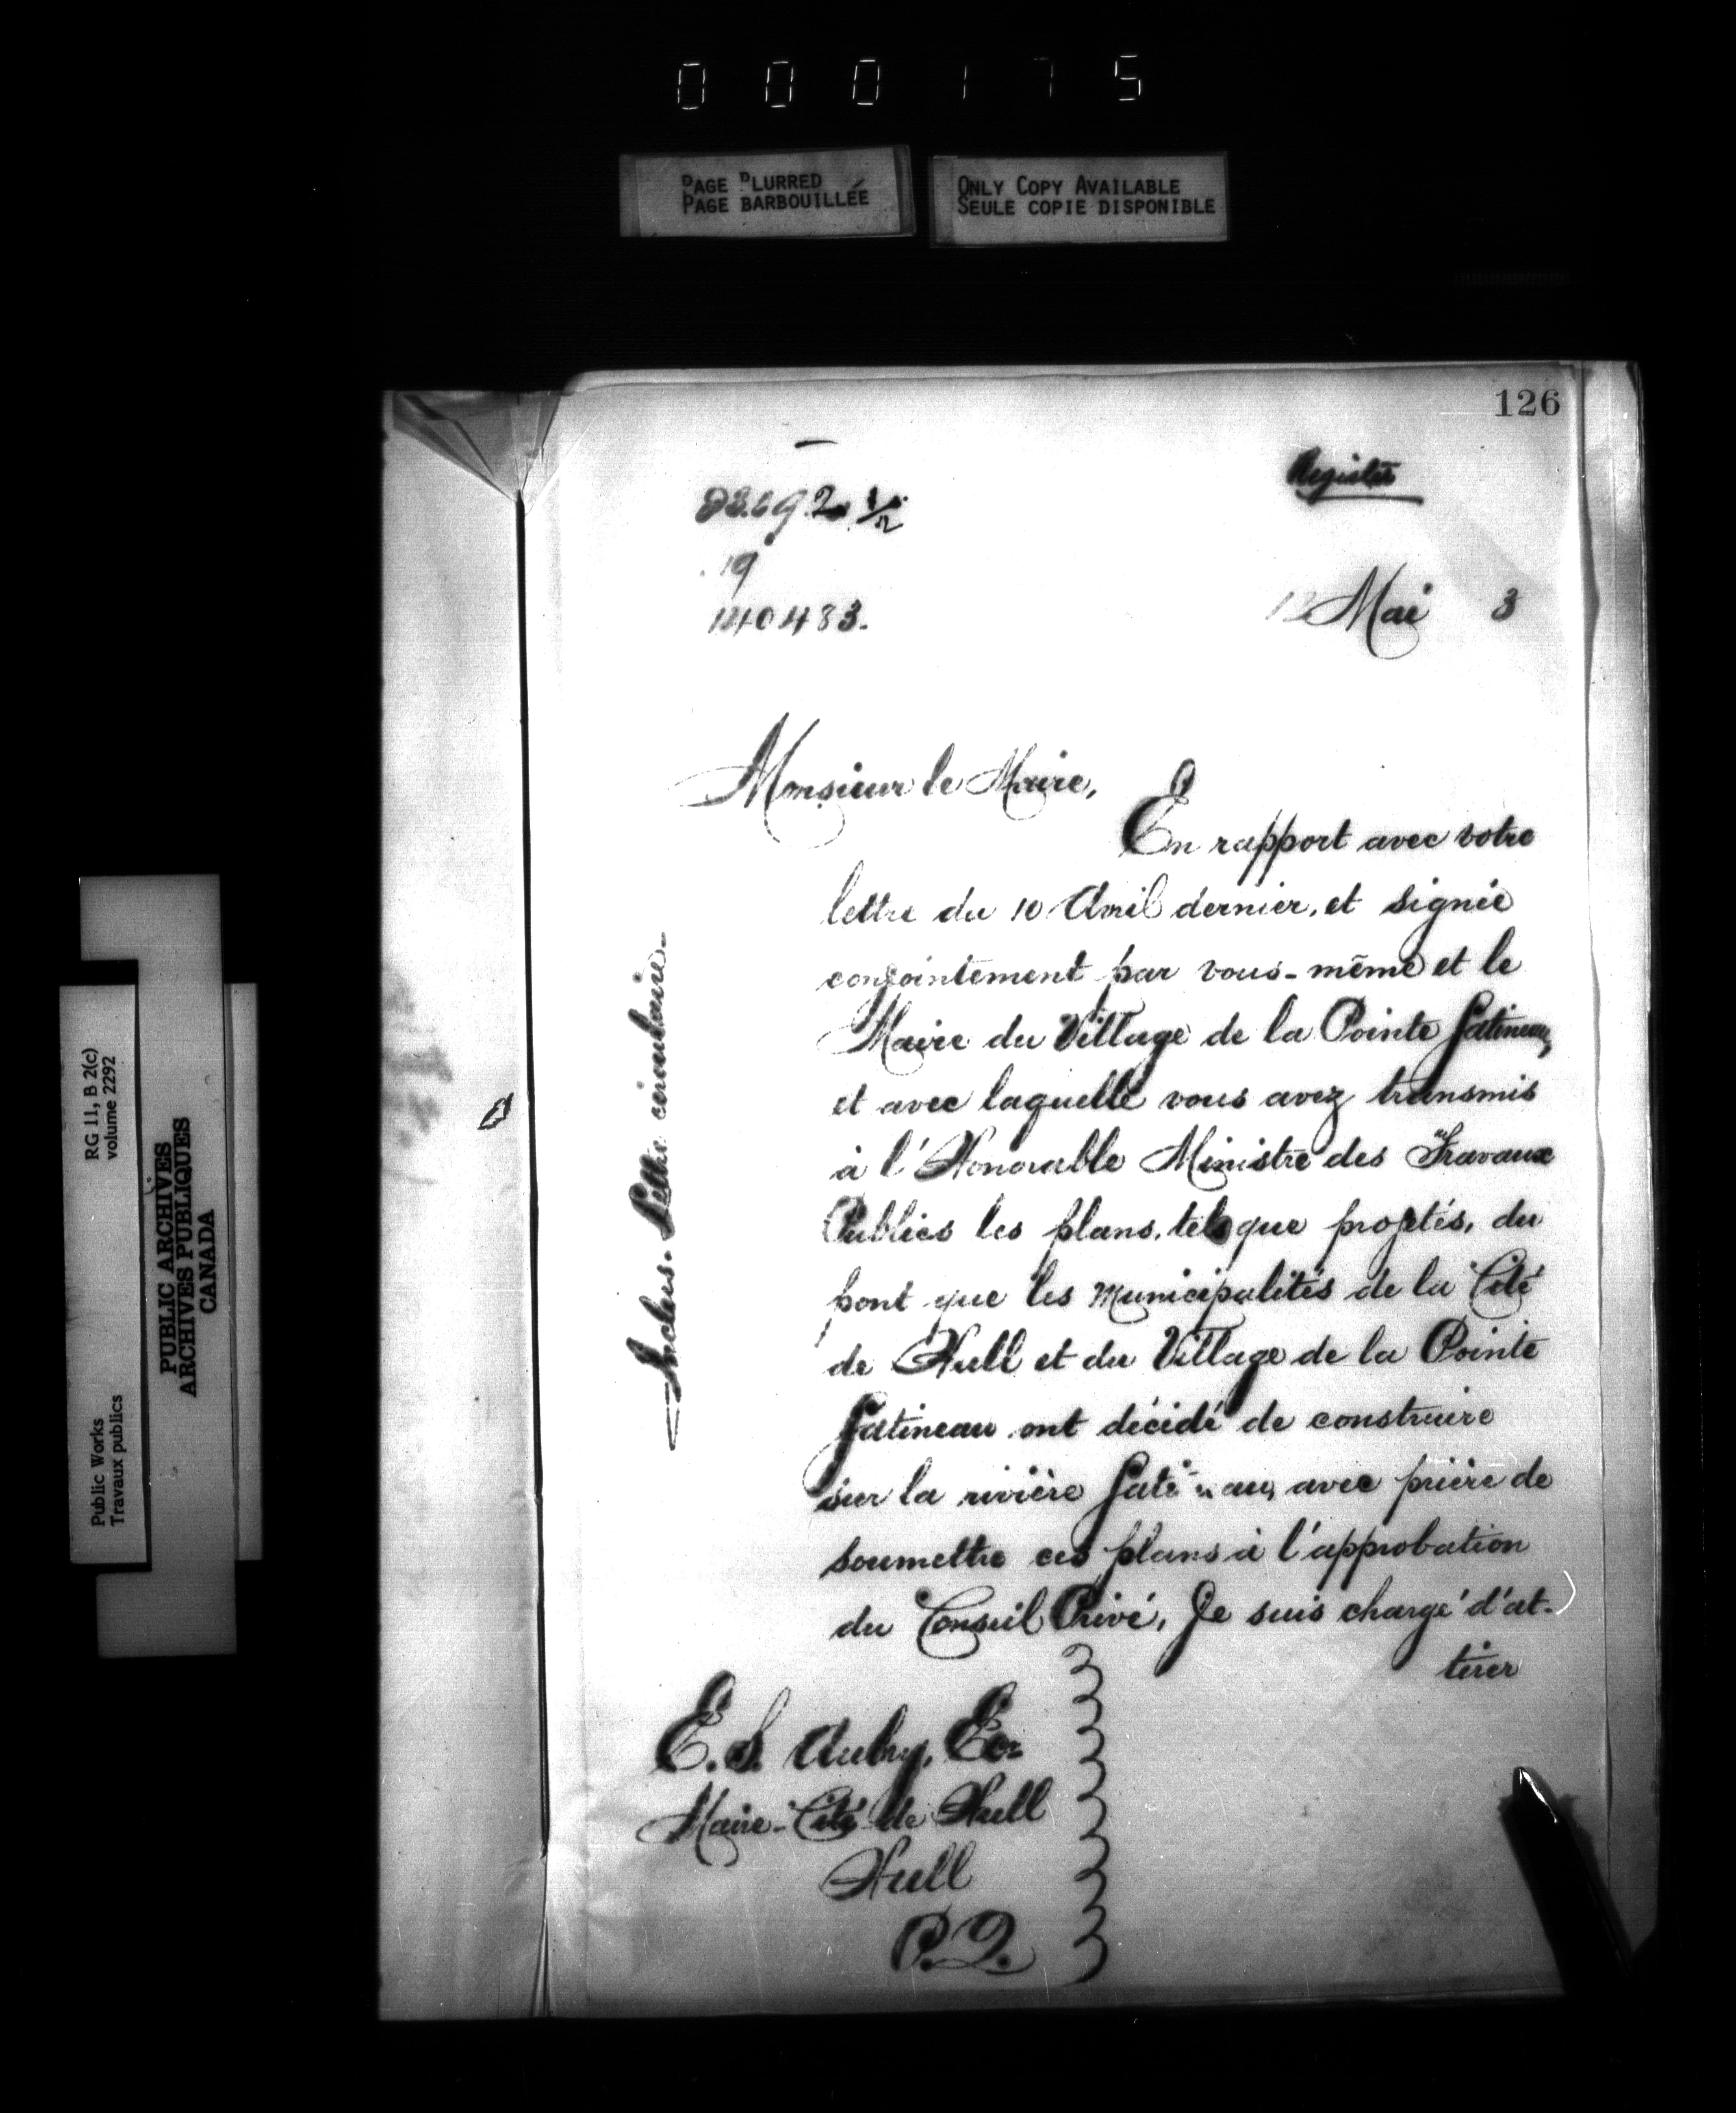 000175
PAGE BLURRED
PAGE BARBOUILLÉE
ONLY COPY AVAILABLE
SEULE COPIE DISPONIBLE
126
Register
19
140483.
12 Mai 3
Monsieur le Maire,
En rapport avec votre
lettre du 10 Avril dernier, et signée
conjointement par vous-même et le
Maire du Village de la Pointe Gatineau,
et avec laquelle vous avez transmis
à l'Honorable Ministre des Travaux
Publics les plans, tels que projetés, du
pont que les Municipalités de la Cité
de Hull et du Village de la Pointe
Gatineau ont décidé de construire
sur la rivière Gatineau, avec prière de
soumettre ces plans à l'approbation
du Conseil Privé, Je suis chargé d'at-
tirer
E. S. Aubry, Ecr
Maire - Cité de Hull
Hull
P.Q.
Inclus. Lettre circulaire.
RG 11, B 2(c)
volume 2292
Public Works
Travaux publics
PUBLIC ARCHIVES
ARCHIVES PUBLIQUES
CANADA